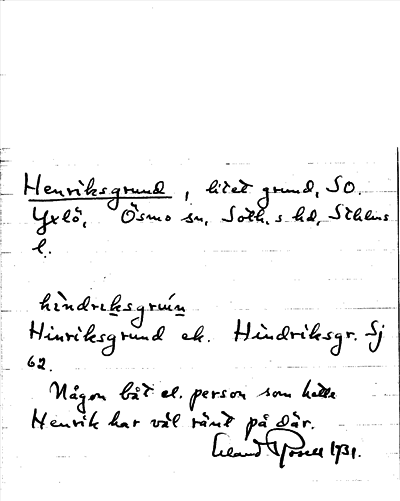 Henriksgrund, litet grund, SO.
Yxlö, Ösmo sn, Soth.s hd, Sthlms
l.
hìndriksgrún
Hinriksgrund ek. Hindriksgr. Sj
62.
Någon båt el. person som hette
Henrik har väl ränt på där.
Erland Rosell 1931.